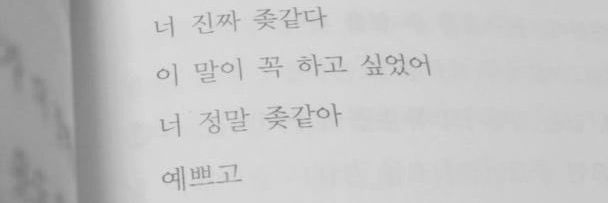 너 진짜 좆같다
이 말이 꼭 하고 싶었어
너 정말 좆같아
예쁘고